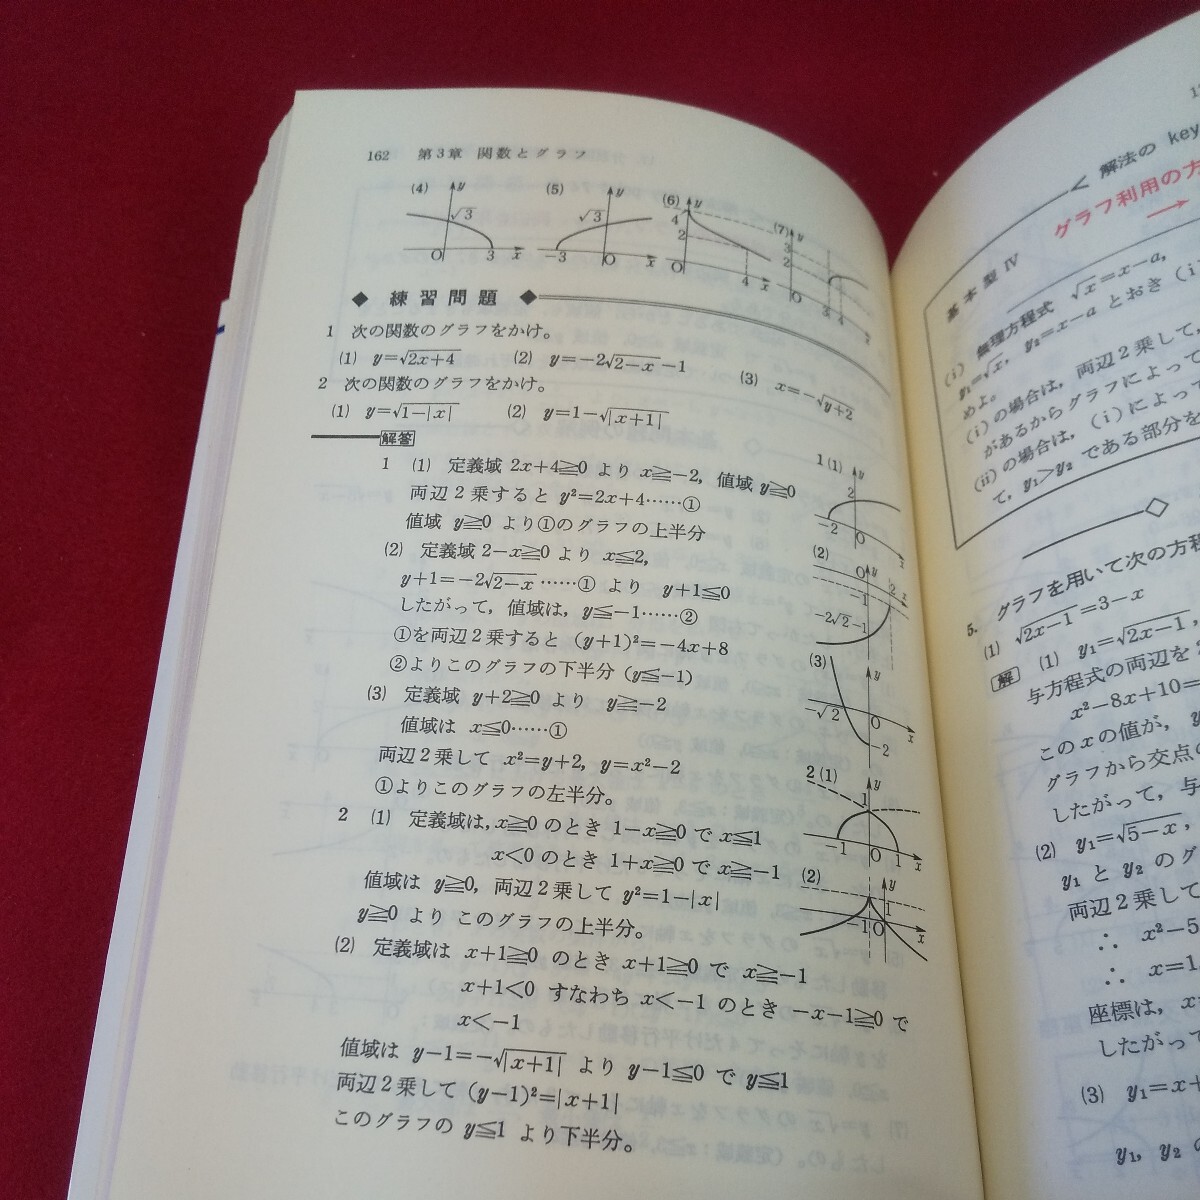 162 第3章 関数とグラフ
(4) y √3 O 3 x
(5) y √3 -3 O x
(6) y 4 2 O 4 x
(7) y 3 2 O 3 4 x
◆ 練習問題 ◆
1 次の関数のグラフをかけ。
(1) y=√2x+4 (2) y=-2√2-x-1 (3) x=-√y+2
2 次の関数のグラフをかけ。
(1) y=√1-|x| (2) y=1-√|x+1|
解答
1 (1) 定義域 2x+4≧0 より x≧-2, 値域 y≧0
両辺2乗すると y²=2x+4……①
値域 y≧0 より①のグラフの上半分
(2) 定義域2-x≧0 より x≦2,
y+1=-2√2-x……① より y+1≦0
したがって, 値域は, y≦-1……②
①を両辺2乗すると (y+1)²=-4x+8
②よりこのグラフの下半分 (y≦-1)
(3) 定義域 y+2≧0 より y≧-2
値域は x≦0……①
両辺2乗して x²=y+2, y=x²-2
①よりこのグラフの左半分。
2 (1) 定義域は, x≧0 のとき 1-x≧0 で x≦1
x<0 のとき 1+x≧0 で x≧-1
値域は y≧0, 両辺2乗して y²=1-|x|
y≧0 より このグラフの上半分。
(2) 定義域は x+1≧0 のとき x+1≧0 で x≧-1
x+1<0 すなわち x<-1 のとき -x-1≧0 で
x<-1
値域は y-1=-√|x+1| より y-1≦0 で y≦1
両辺2乗して (y-1)²=|x+1|
このグラフの y≦1 より下半分。
1 (1) y 2 -2 O x
(2) y O 2 x -1 -2√2-1
(3) y -√2 O x -2
2 (1) y 1 -1 O 1 x
(2) y 1 -1 O x
解法の key
グラフ利用の方
基本型 Ⅳ
(i) 無理方程式 √x=x-a,
y₁=√x, y₂=x-a とおき (i
めよ。
(i) の場合は, 両辺2乗して,
があるからグラフによって
(ii) の場合は, (i) によって
て, y₁>y₂ である部分を
5. グラフを用いて次の方程
(1) √2x-1=3-x
解 (1) y₁=√2x-1,
与方程式の両辺を
x²-8x+10=
このxの値が, y
グラフから交点の
したがって, 与
(2) y₁=√5-x,
y₁ と y₂ のグ
両辺2乗して
∴ x²-5
∴ x=1
座標は, x
したがって
(3) y₁=x+
y₁, y₂ の